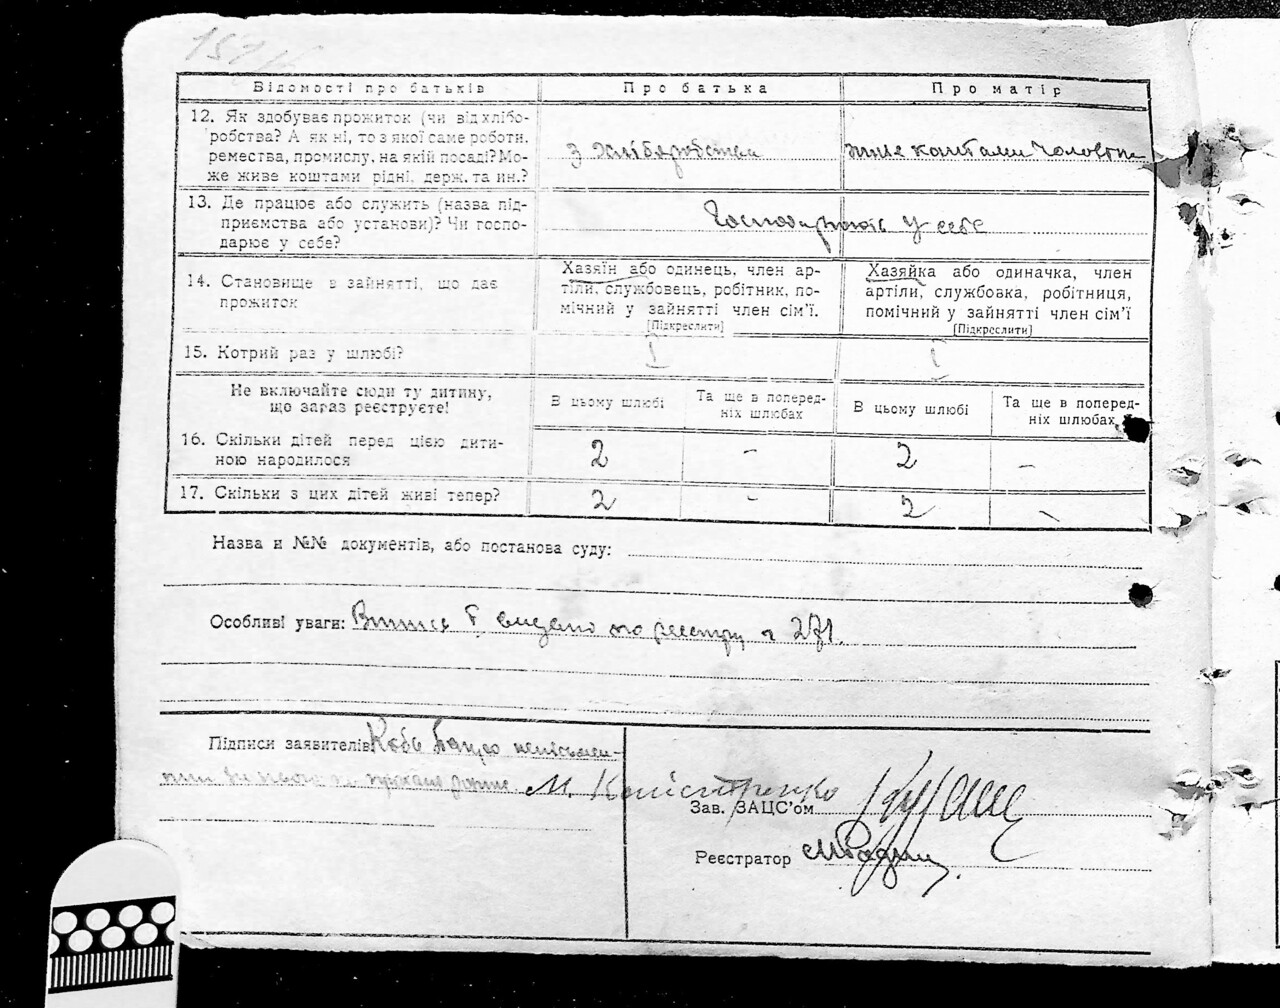 151
Відомості про батьків Про батька Про матір
12. Як здобуває прожиток (чи від хлібо-
робства? А як ні, то з якої саме роботи,
ремества, промислу, на якій посаді? Мо-
же живе коштами рідні, держ. та ин.?
з хліборобства живе коштами чоловіка
13. Де працює або служить (назва під-
приємства або установи)? Чи госпо-
дарює у себе?
Господарюють у себе
14. Становище в зайнятті, що дає
прожиток
Хазяїн або одинець, член ар-
тіли, службовець, робітник, по-
мічний у зайнятті член сім'ї.
[Підкреслити]
Хазяйка або одиначка, член
артіли, службовка, робітниця,
помічний у зайнятті член сім'ї
[Підкреслити]
15. Котрий раз у шлюбі? I I
Не включайте сюди ту дитину,
що зараз реєструєте!
В цьому шлюбі
Та ще в поперед-
ніх шлюбах
В цьому шлюбі
Та ще в поперед-
ніх шлюбах
16. Скільки дітей перед цією дити-
ною народилося
2 - 2 -
17. Скільки з цих дітей живі тепер? 2 - 2 -
Назва и №№ документів, або постанова суду:
Особливі уваги: видано по реєстру 271.
Підписи заявителів
М.
Зав. ЗАЦС'ом
Реєстратор